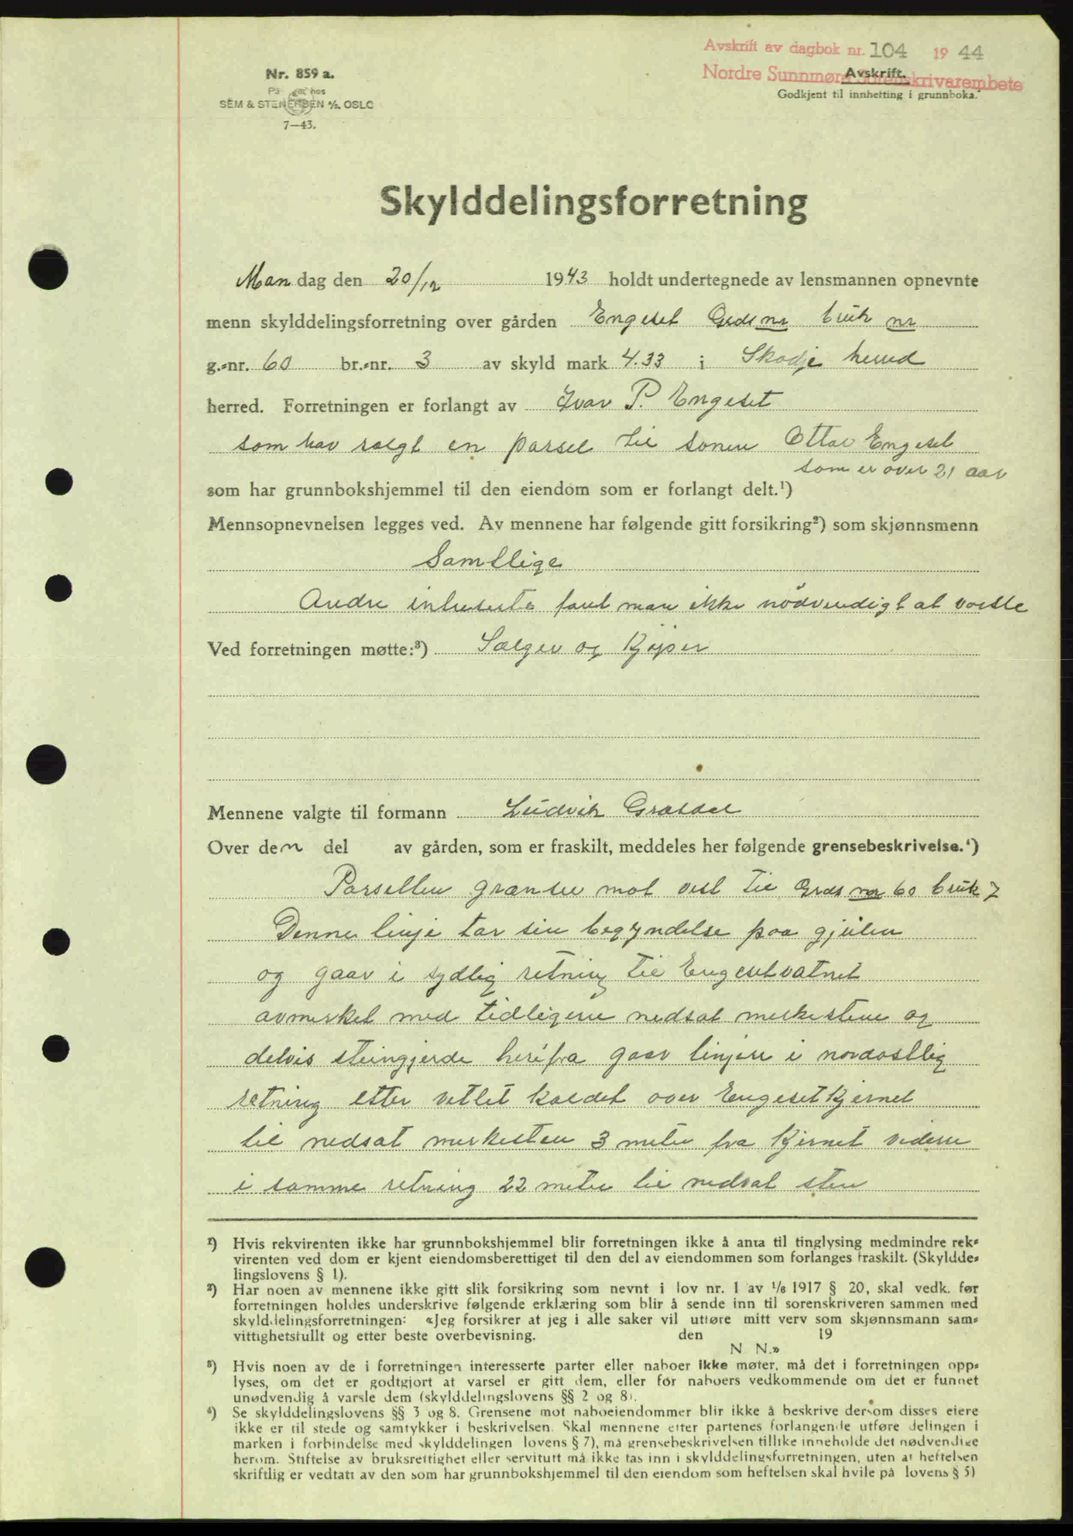 Avskrift av dagbok nr. 104 1944
Nordre Sunnmøre Sorenskriverembete
Avskrift.
Godkjent til innhefting i grunnboka.
Nr. 859 a.
På hos
SEM & STENERSEN A/S. OSLO
7—43.
Skylddelingsforretning
Mandag den 20/12 1943 holdt undertegnede av lensmannen opnevnte
menn skylddelingsforretning over gården Engeset Grds nr bruk nr
g.-nr. 60 br.-nr. 3 av skyld mark 4.33 i Skodje herred
herred. Forretningen er forlangt av Ivar P. Engeset
som har solgt en parsel til sønen Ottar Engeset
som er over 21 aar
som har grunnbokshjemmel til den eiendom som er forlangt delt.¹)
Mennsopnevnelsen legges ved. Av mennene har følgende gitt forsikring²) som skjønnsmenn
Samtlige
Andre intreserte fant man ikke nödvendigt at varsle
Ved forretningen møtte:³) Sælger og Kjöper
Mennene valgte til formann Ludvik
Over den del av gården, som er fraskilt, meddeles her følgende grensebeskrivelse.⁴)
Parsellen grænser mot vest til Grds nr 60 bruk 7
Denne linje tar sin begyndelse paa gjeilen
og gaar i sydlig retning til Engesetvatnet
avmerket med tidligere nedsat merkestene og
delvis steingjerde herifra gaar linjen i nordostlig
retning etter vatlet kaldet over Engesetkjernet
til nedsat merkesten 3 meter fra Kjernet videre
i samme retning 22 meter til nedsat sten
¹) Hvis rekvirenten ikke har grunnbokshjemmel blir forretningen ikke å anta til tinglysing medmindre rek-
virenten ved dom er kjent eiendomsberettiget til den del av eiendommen som forlanges fraskilt. (Skyldde-
lingslovens § 1).
²) Har noen av mennene ikke gitt slik forsikring som nevnt i lov nr. 1 av 1/6 1917 § 20, skal vedk. før
forretningen holdes underskrive følgende erklæring som blir å sende inn til sorenskriveren sammen med
skylddelingsforretningen: «Jeg forsikrer at jeg i alle saker vil utføre mitt verv som skjønnsmann sam-
vittighetsfullt og etter beste overbevisning. den 19
N N.»
³) Hvis noen av de i forretningen interesserte parter eller naboer ikke møter, må det i forretningen opp-
lyses, om det er godtgjort at varsel er gitt dem, eller for naboers vedkommende om det er funnet
unødvendig å varsle dem (skylddelingslovens §§ 2 og 8).
⁴) Se skylddelingslovens §§ 3 og 8. Grensene mot naboeiendommer blir ikke å beskrive dersom disses eiere
ikke er til stede og samtykker i beskrivelsen. Skal mennene etter partenes forlangende utføre delingen i
marken i forbindelse med skylddelingen lovens § 7), må grensebeskrivelsen tillike inneholde det nødvendige
herom. Stiftelse av bruksrettighet eller servitutt må ikke tas inn i skylddelingsforretningen, uten at heftelsen
skriftlig er vedtatt av den som har grunnbokshjemmel til den eiendom som heftelsen skal hvile på lovens § 5)